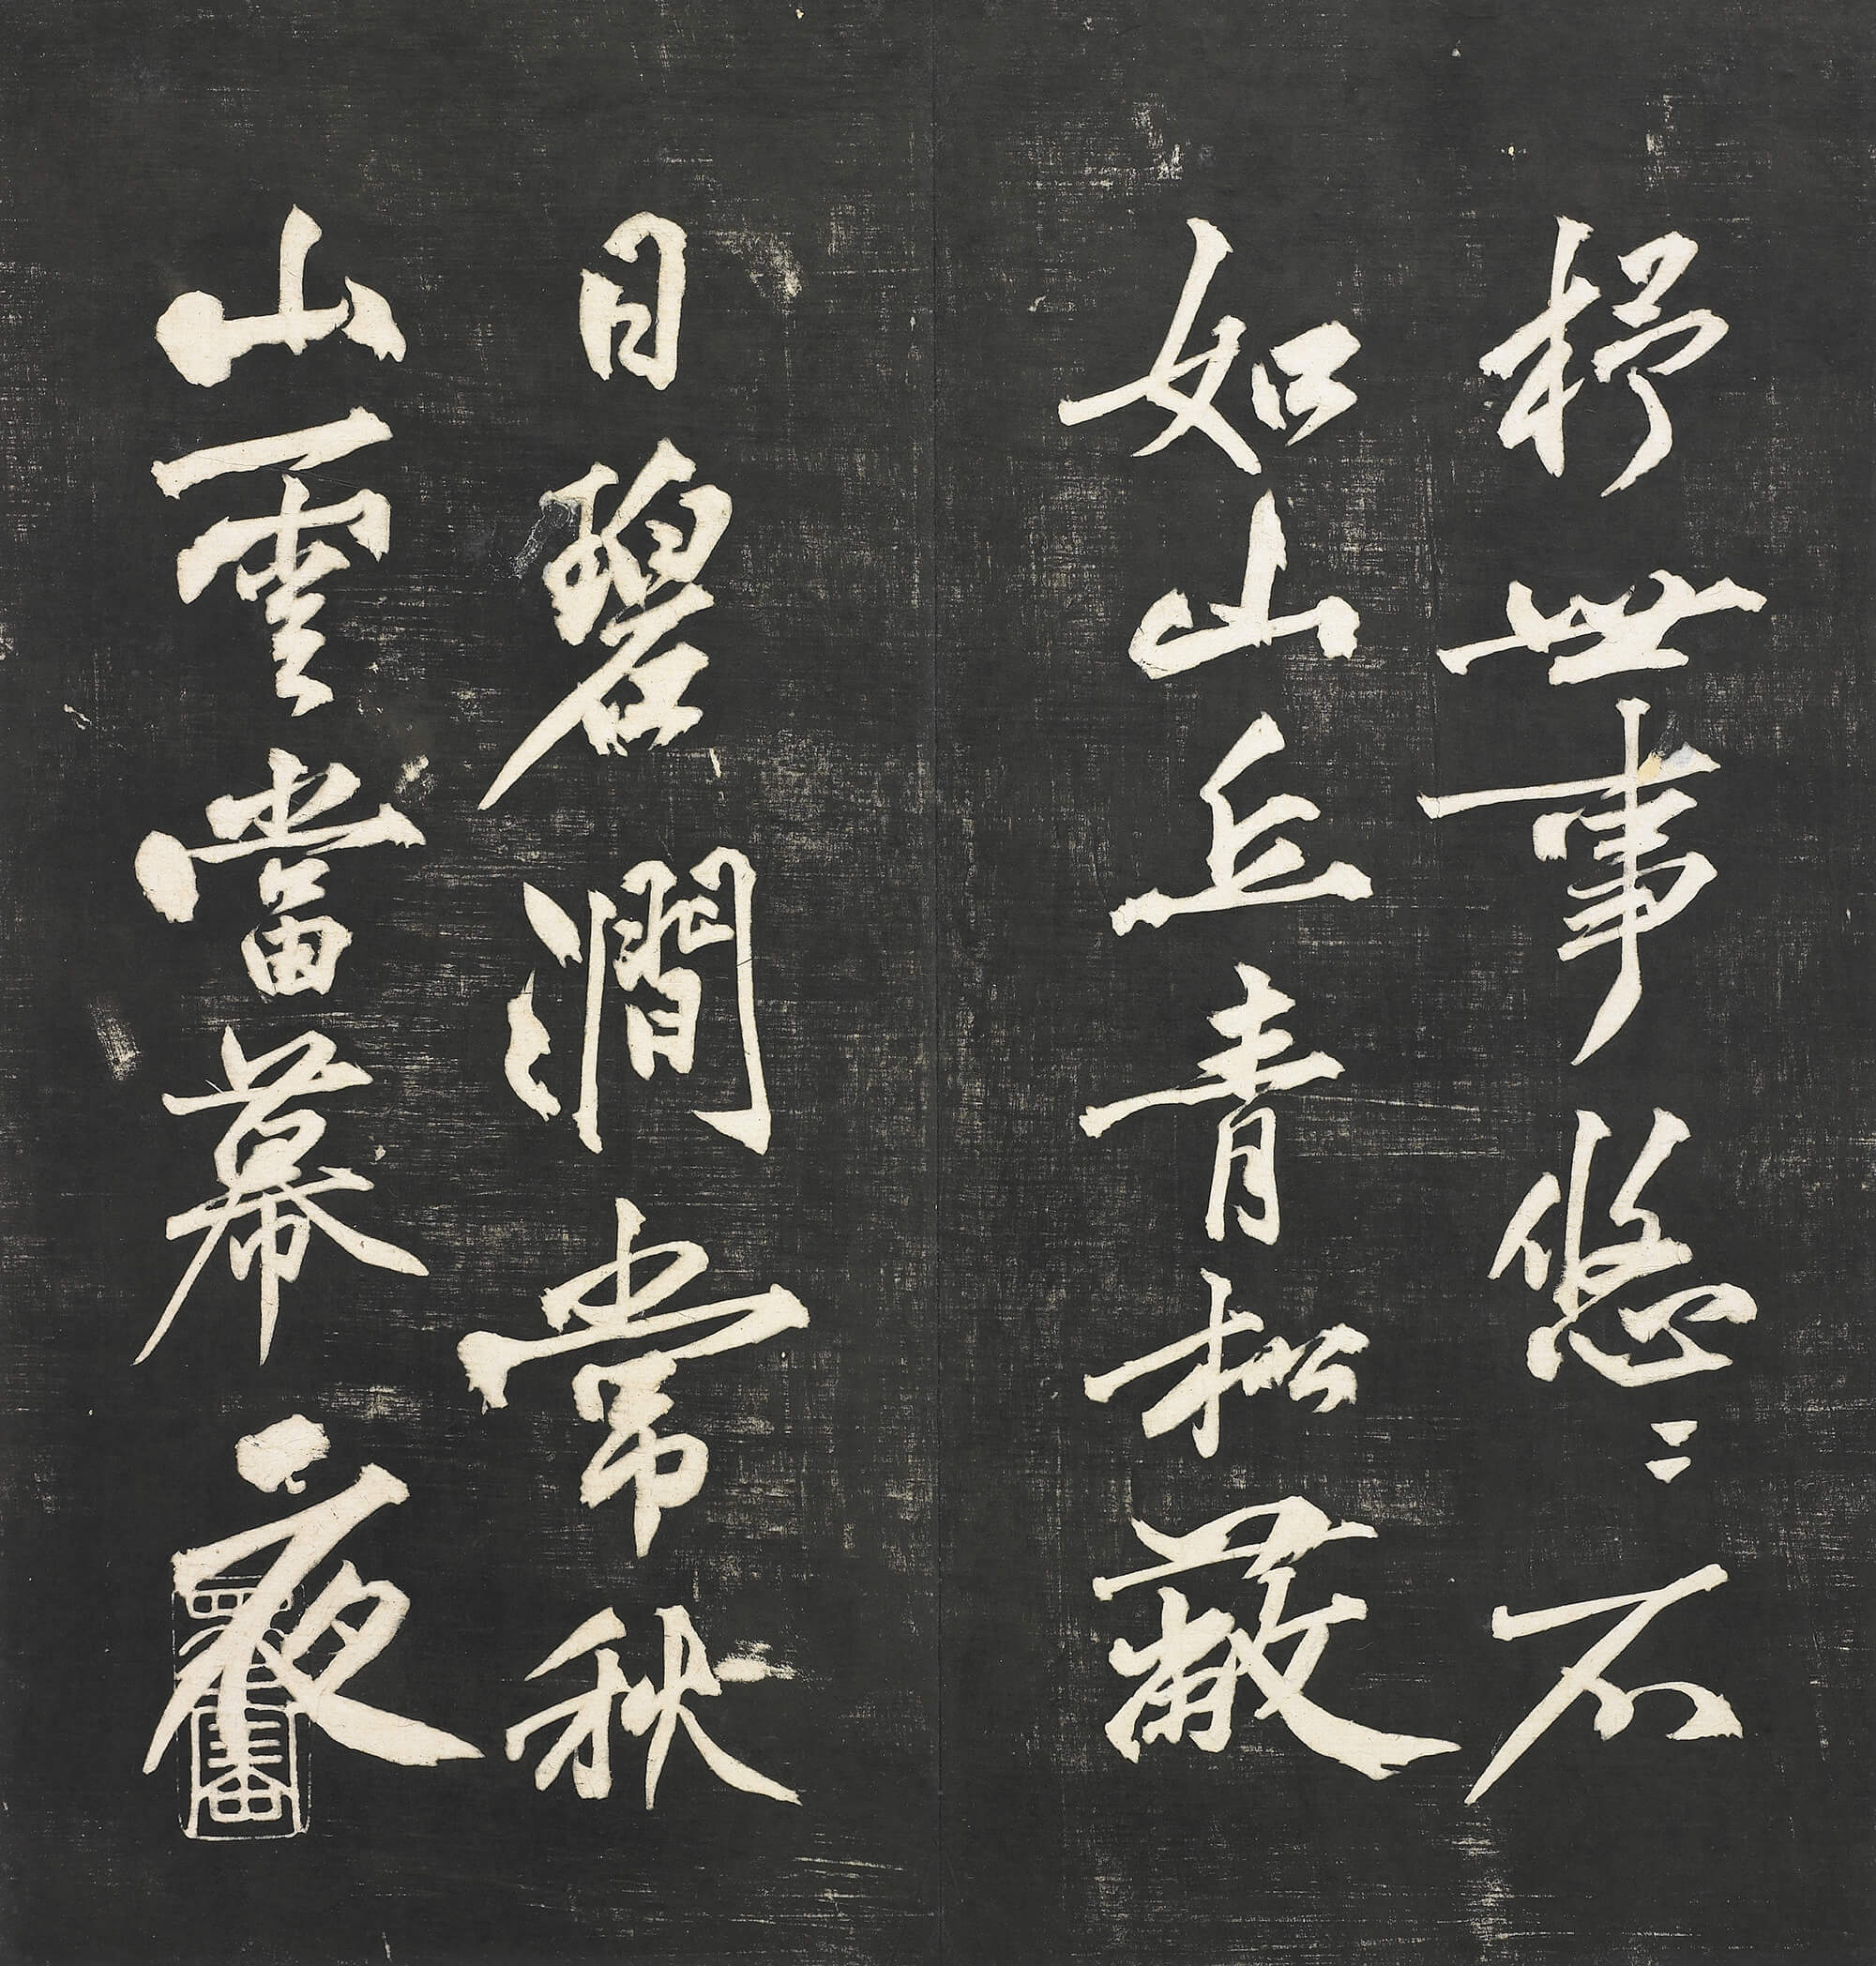 杼世事悠〻不
如山丘青松蔽
日碧澗常秋
山雲當幕夜